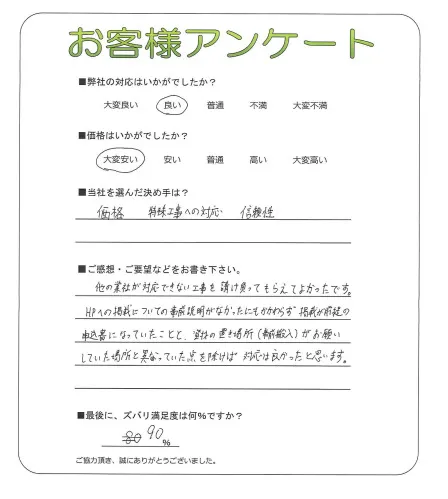 お客様アンケート
■弊社の対応はいかがでしたか?
大変良い 良い 普通 不満 大変不満
■価格はいかがでしたか?
大変安い 安い 普通 高い 大変高い
■当社を選んだ決め手は?
価格 特殊工事への対応 信頼性
■ご感想・ご要望などをお書き下さい。
他の業社が対応できない工事を請け負ってもらえてよかったです。
HPへの掲載についての事前説明がなかったにもかかわらず掲載が前提の
申込書になっていたことと、資材の置き場所(事前搬入)がお願い
していた場所と異なっていた点を除けば対応は良かったと思います。
■最後に、ズバリ満足度は何%ですか?
80 90 %
ご協力頂き、誠にありがとうございました。